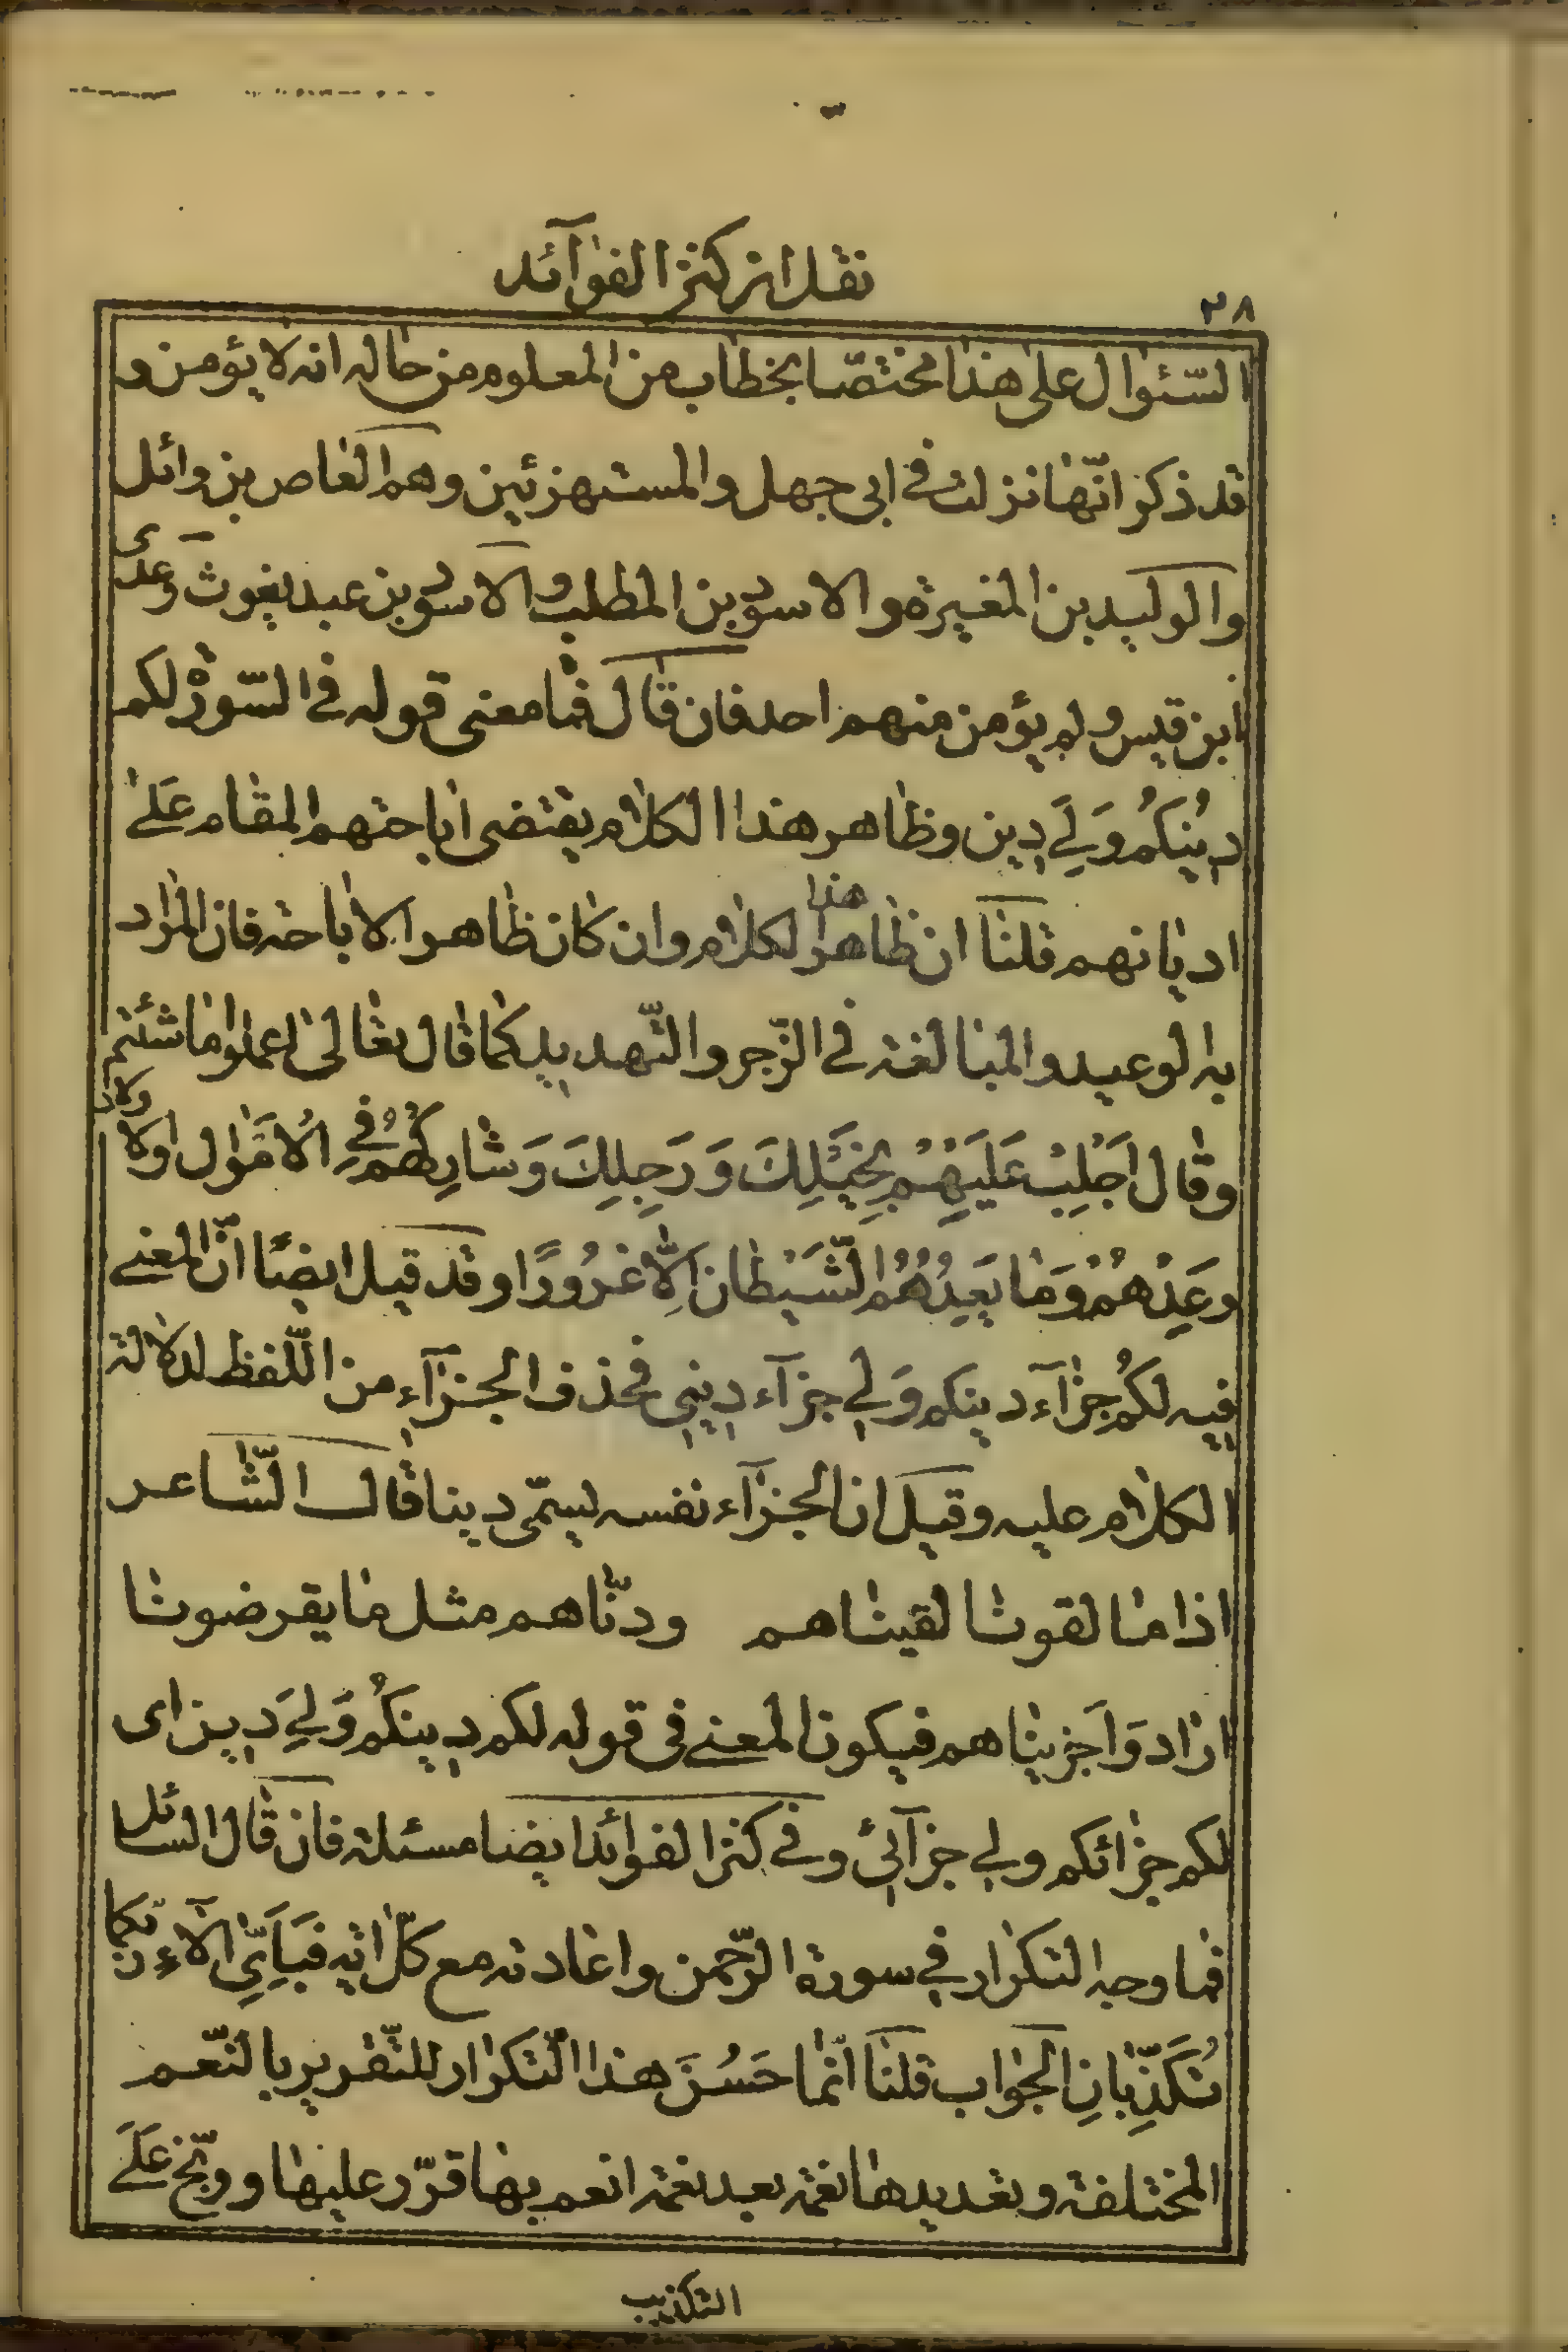 نقل از کنز الفوآئد
۳۸
السّئوال علی هذا مختصّا بخطاب من المعلوم من حاله انه لا یؤمن و
قد ذکر انّها نزلت فی ابی جهل والمستهزئین وهم العاص بن وائل
والولید بن المغیرة والاسود بن المطلب والاسود بن عبد یغوث وعدی
ابن قیس ولم یؤمن منهم احد فان قال فما معنی قوله فی السّورة لکم
دِینُکُمْ وَلِیَ دِین وظاهر هذا الکلام یقتضی اباحتهم المقام عَلی
ادیانهم قلنا ان ظاهر هذا الکلام وان کان ظاهر الاباحة فان المراد
به الوعید والمبالغة فی الزّجر والتّهدید کما قال تعالی اعملوا ما شئتم
وقال اَجْلِبْ عَلَیْهِمْ بِخَیْلِکَ وَرَجِلِکَ وَشارِکْهُمْ فِی الْاَمْوال والاولاد
وَعِدْهُمْ وَمٰا یَعِدُهُمُ الشَّیْطان اِلّا غُرُورًا وقد قیل ایضًا انّ المعنی
فیه لکُم جزآء دینکم وَلی جزآء دینی فحذف الجزآء من اللّفظ لدلالة
الکلام علیه وقیل ان الجزآء نفسه یسمّی دینا قال الشّاعر
اذا ما لقونا لقیناهم ودنّاهم مثل ما یقرضونا
اراد وَاَجزیناهم فیکون المعنی فی قوله لکم دِینکُم وَلِیَ دِین ای
لکم جزائکم ولی جزآئی وفی کنز الفوائد ایضا مسئلة فان قال السائل
فما وجه التکرار فی سورة الرّحمن واعادته مع کلّ ایه فَبِاَیِّ آلآءِ ربّکما
تُکَذِّبانِ الجواب قلنا انّما حَسُنَ هذا التّکرار للتّقریر بالنّعم
المختلفة وتعدیدها نعمة بعد نعمة انعم بها قرّر علیها ووبّخ عَلَی
التکذیب